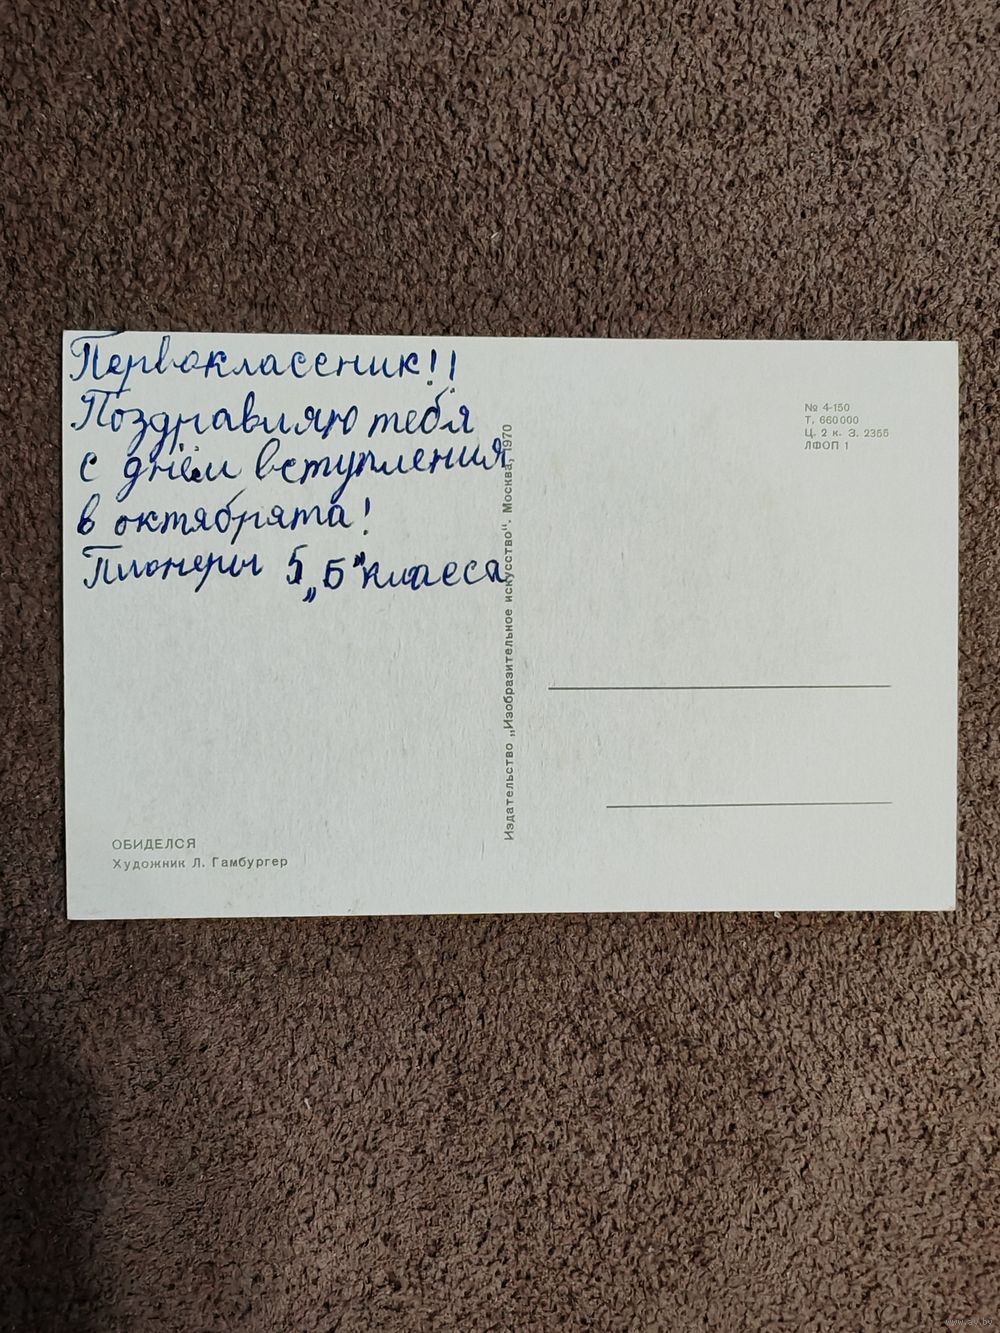 Первоклассник!!
Поздравляю тебя
с днём вступления
в октябрята!
Пионеры 5 „Б" класса
№ 4-150
Т. 660000
Ц. 2 к. З. 2355
ЛФОП 1
Издательство „Изобразительное искусство". Москва, 1970
ОБИДЕЛСЯ
Художник Л. Гамбургер
www.ay.by